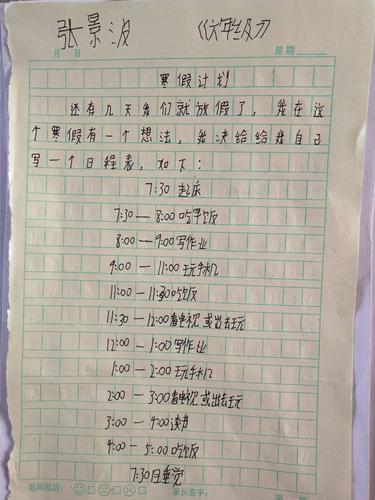 张景波 《六年级》
月 日 星期
寒假计划
还有几天我们就放假了，我在这
个寒假有一个想法，我决给给我自己
写一个日程表，如下：
7:30 起床
7:30 — 8:00 吃早饭
8:00 — 9:00 写作业
9:00 — 11:00 玩手机
11:00 — 11:30 吃饭
11:30 — 12:00 看电视 或出去玩
12:00 — 1:00 写作业
1:00 — 2:00 玩手机
2:00 — 3:00 看电视 或出去玩
3:00 — 4:00 读书
4:00 — 5:00 吃饭
7:30 目垂觉
老师批语： 家长签字：